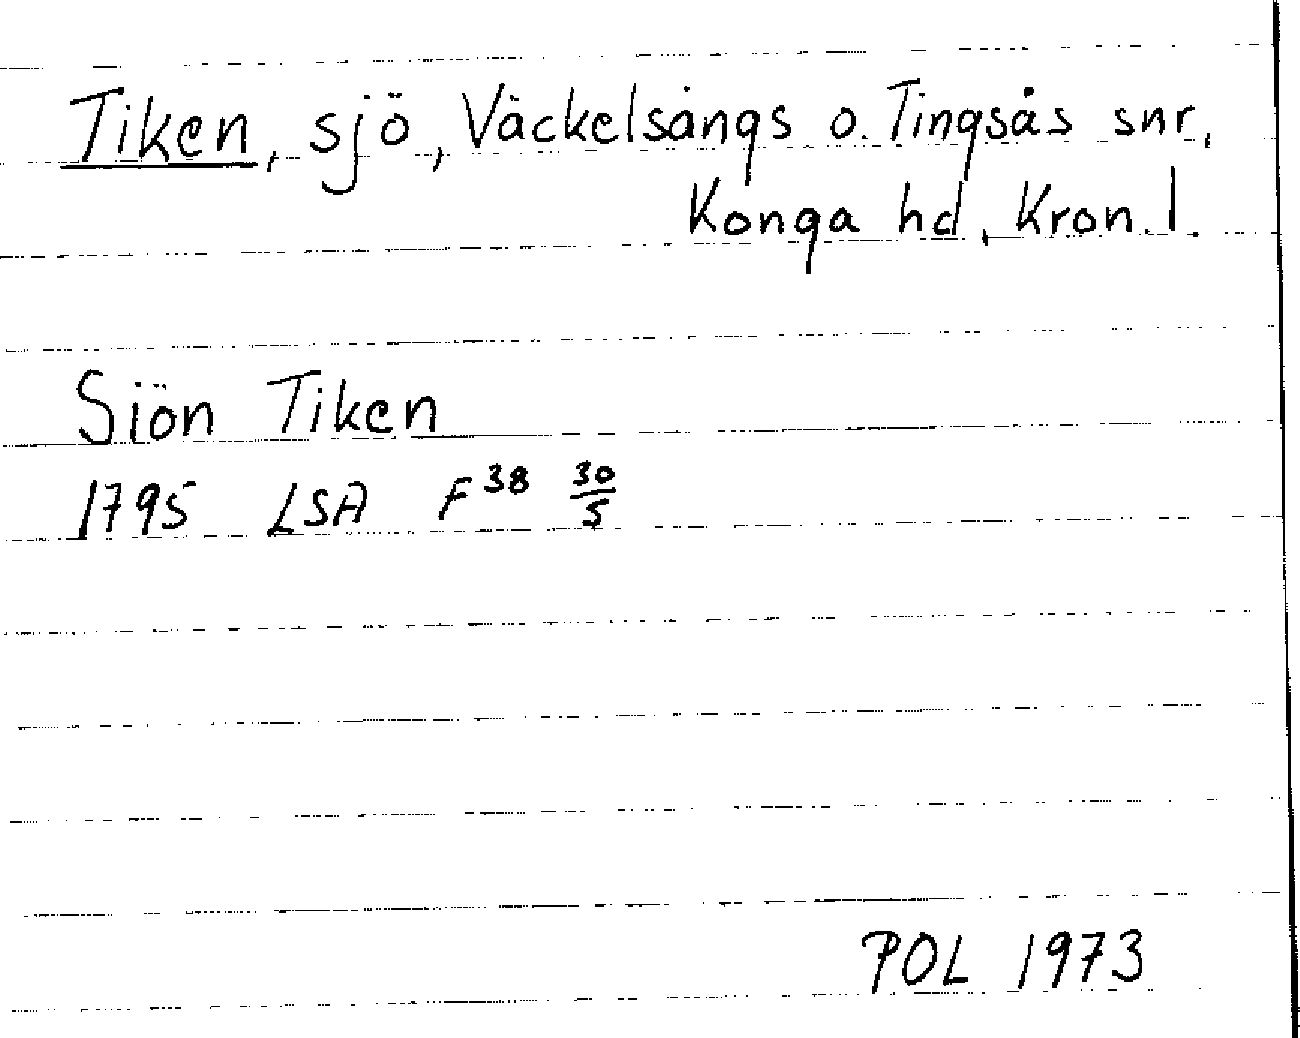 Tiken, sjö, Väckelsångs o. Tingsås snr,
Konga hd, Kron. l.
Siön Tiken
1795 LSA F 38 30/5
POL 1973